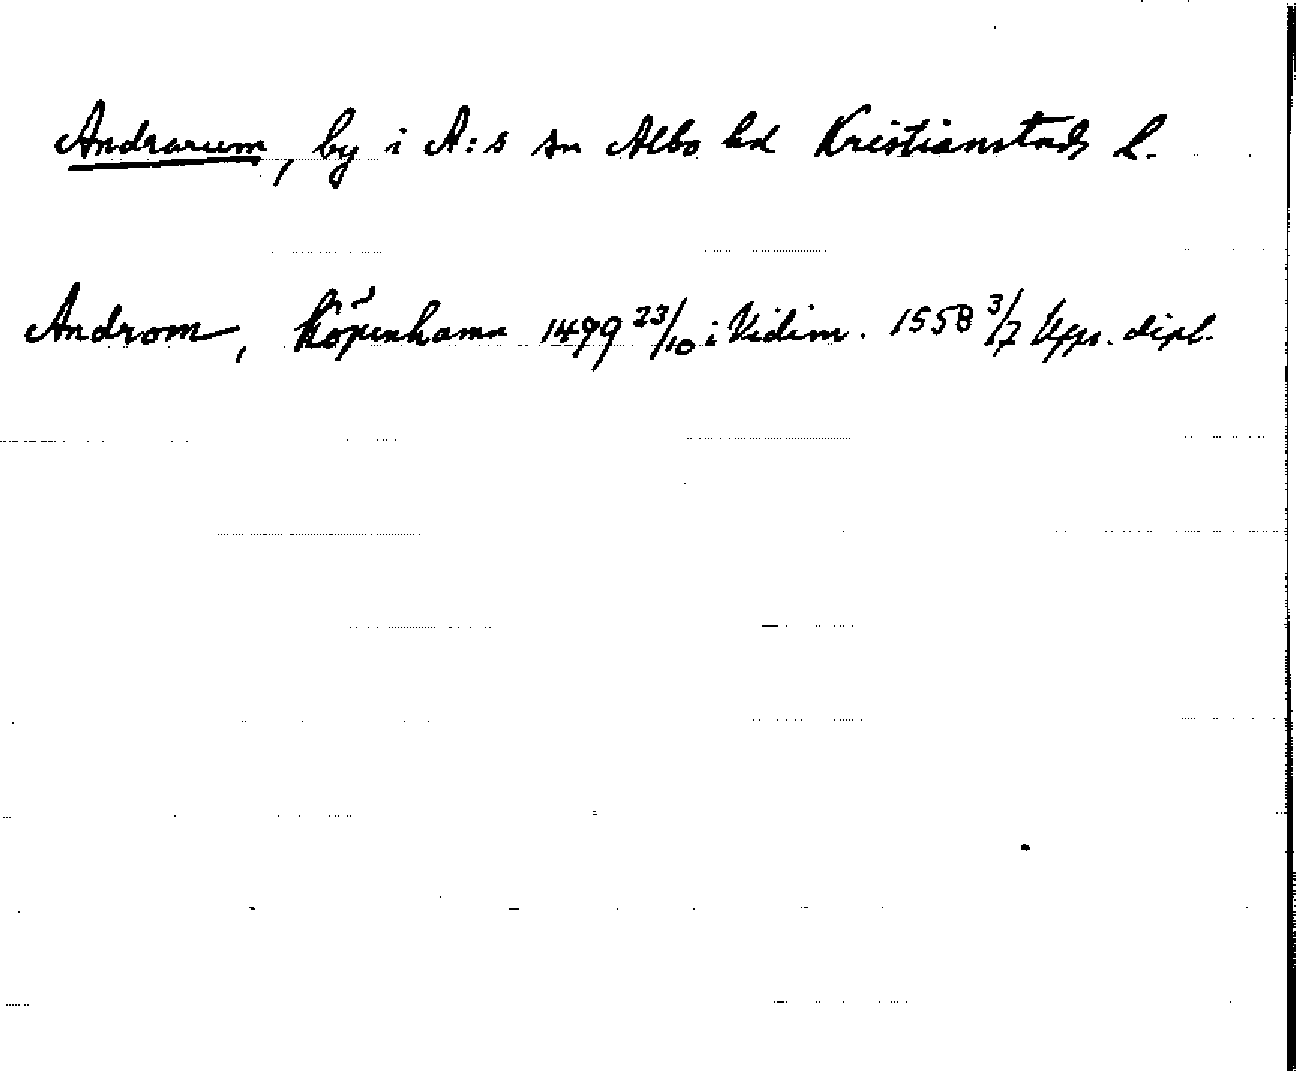 Andrarum, by i A:s sn Albo hd Kristianstads l.
Androm, Köpenhamn 1499 23/10 i Vidim. 1558 3/7 Upps. dipl.